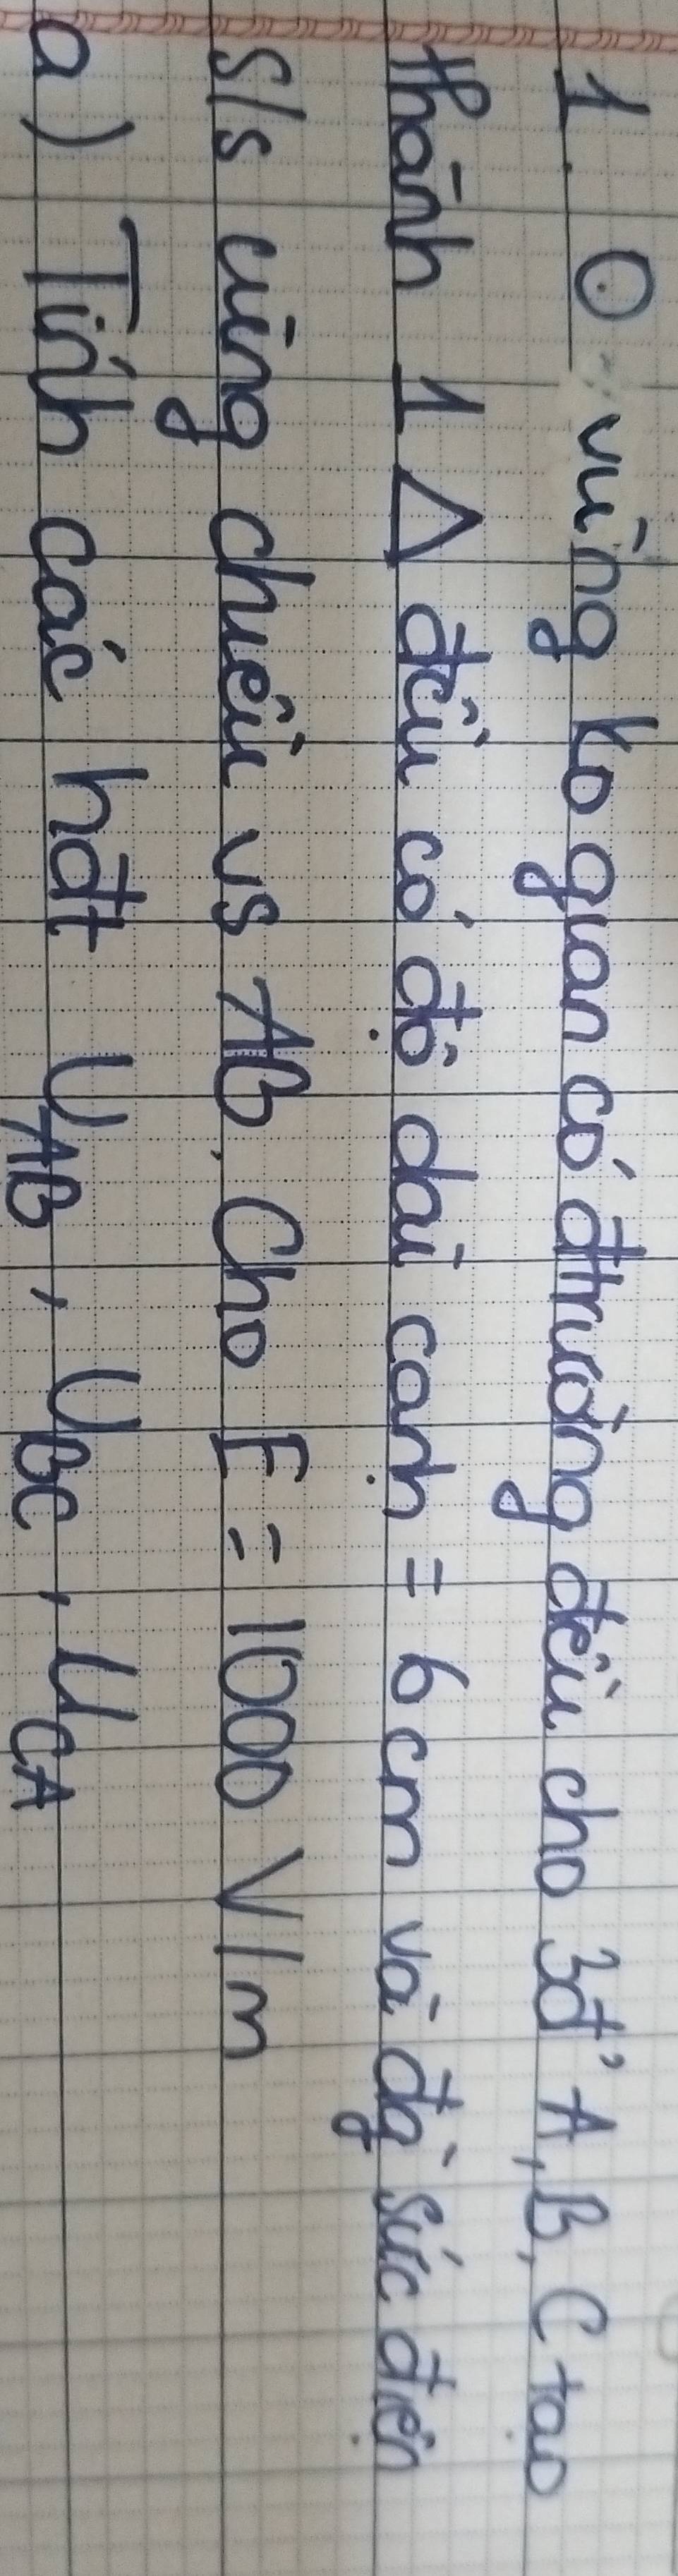 1. Ở vùng ko gian có đtrường đều cho 3đ' A, B, C tạo
thành 1 Δ đều có độ dài cạnh = 6 cm và đg` sức điện
s/s cùng chiều vs AB. Cho E = 1000 V/m
a) Tính các hđt U_AB, U_BC, U_CA